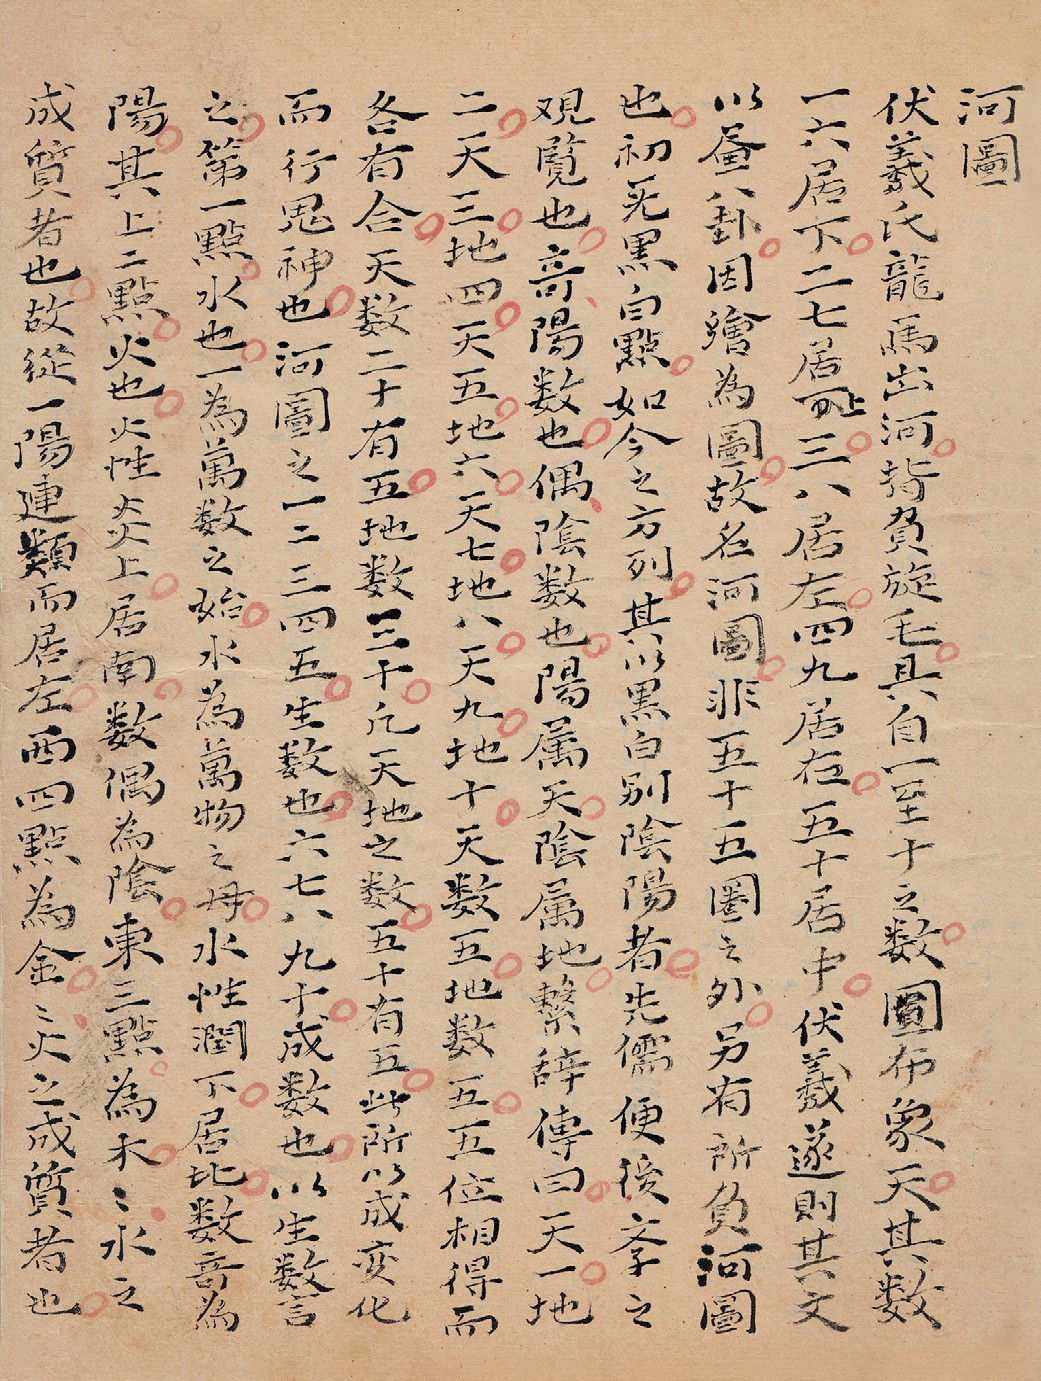 河圖
伏羲氏龍馬出河背負旋毛具自一至十之數圓布象天其數
一六居下二七居上三八居左四九居右五十居中伏羲遂則其文
以畫八卦因繪為圖故名河圖非五十五圈之外另有所負河圖
也初无黑白點如今之方列其以黑白別陰陽者先儒便後孝之
观覧也奇陽数也偶陰数也陽属天陰属地繫辞傳曰天一地
二天三地四天五地六天七地八天九地十天数五地数五五位相得而
各有合天数二十有五地数三十凡天地之数五十有五此所以成変化
而行鬼神也河圖之一二三四五生数也六七八九十成数也以生数言
之第一點水也一為萬数之始水為萬物之母水性潤下居北数奇為
陽其上二點火也火性炎上居南数偶為陰東三點為木〻水之
成質者也故從一陽連類而居左西四點為金〻火之成質者也